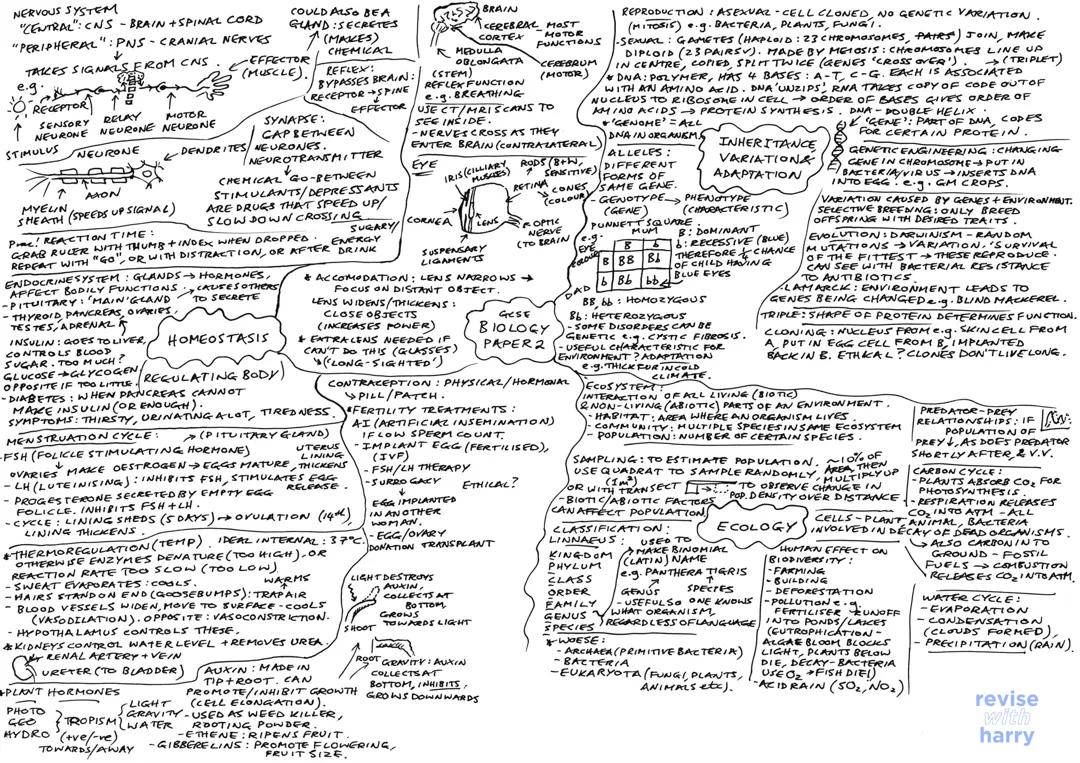 NERVOUS SYSTEM
"CENTRAL": CNS - BRAIN + SPINAL CORD
"PERIPHERAL": PNS - CRANIAL NERVES
TAKES SIGNALS FROM CNS.
e.g.
EFFECTOR
(MUSCLE).
RECEPTOR
STIMULUS
SENSORY
NEURONE
RELAY
NEURONE
MOTOR
NEURONE
NEURONE
DENDRITES
AXON
MYELIN
SHEATH (SPEEDS UP SIGNAL)
COULD ALSO BE A
GLAND: SECRETES
(MAKES)
CHEMICAL
REFLEX:
BYPASSES BRAIN:
RECEPTOR → SPINE
EFFECTOR
SYNAPSE:
GAP BETWEEN
NEURONES.
NEUROTRANSMITTER
CHEMICAL 'GO-BETWEEN
STIMULANTS/DEPRESSANTS
ARE DRUGS THAT SPEED UP/
SLOW DOWN CROSSING
PRAC! REACTION TIME:
GRAB RULER WITH THUMB + INDEX WHEN DROPPED.
REPEAT WITH "GO", OR WITH DISTRACTION, OR AFTER
SUGARY/
ENERGY
DRINK
BRAIN
CEREBRAL
CORTEX
- MOST
MOTOR
FUNCTIONS
MEDULLA
OBLONGATA
(STEM)
CEREBRUM
(MOTOR)
REFLEX FUNCTION
e.g. BREATHING
USE CT/MRI SCANS TO
SEE INSIDE.
- NERVES CROSS AS THEY
ENTER BRAIN (CONTRALATERAL)
EYE
IRIS (CILLIARY
MUSCLES)
RODS (B+W,
SENSITIVE)
RETINA
CONES
(COLOUR)
CORNEA
LENS
OPTIC
NERVE
(TO BRAIN
SUSPENSARY
LIGAMENTS
* ACCOMODATION: LENS NARROWS →
FOCUS ON DISTANT OBJECT.
LENS WIDENS/THICKENS:
CLOSE OBJECTS
(INCREASES POWER)
* EXTRA LENS NEEDED IF
CAN'T DO THIS (GLASSES)
('LONG-SIGHTED')
GCSE
BIOLOGY
PAPER 2
ENDOCRINE SYSTEM: GLANDS → HORMONES,
AFFECT BODILY FUNCTIONS
- PITUITARY: 'MAIN' GLAND
CAUSES OTHERS
TO SECRETE
- THYROID, PANCREAS, OVARIES,
TESTES, ADRENAL
HOMEOSTASIS
REGULATING BODY
INSULIN: GOES TO LIVER,
CONTROLS BLOOD
SUGAR. TOO MUCH?
GLUCOSE → GLYCOGEN
OPPOSITE IF TOO LITTLE.
- DIABETES: WHEN PANCREAS CANNOT
MAKE INSULIN (OR ENOUGH).
SYMPTOMS: THIRSTY, URINATING A LOT, TIREDNESS.
MENSTRUATION CYCLE:
(PITUITARY GLAND)
- FSH (FOLICLE STIMULATING HORMONE)
UTERUS
LINING
THICKENS
OVARIES MAKE OESTROGEN → EGGS MATURE,
- LH (LUTEINISING): INHIBITS FSH, STIMULATES EGG
RELEASE.
- PROGESTERONE SECRETED BY EMPTY EGG
FOLICLE. INHIBITS FSH + LH.
- CYCLE: LINING SHEDS (5 DAYS) → OVULATION (14th),
LINING THICKENS.
* THERMOREGULATION (TEMP). IDEAL INTERNAL: 37°C.
OTHERWISE ENZYMES DENATURE (TOO HIGH), OR
REACTION RATE TOO SLOW (TOO LOW).
- SWEAT EVAPORATES: COOLS.
WARMS
- HAIRS STAND ON END (GOOSEBUMPS): TRAP AIR
- BLOOD VESSELS WIDEN, MOVE TO SURFACE - COOLS
(VASODILATION). OPPOSITE: VASOCONSTRICTION.
- HYPOTHALAMUS CONTROLS THESE.
* KIDNEYS CONTROL WATER LEVEL + REMOVES UREA.
RENAL ARTERY + VEIN
URETER (TO BLADDER)
* PLANT HORMONES
PHOTO
GEO
HYDRO
TROPISM
(+ve/-ve)
TOWARDS/AWAY
LIGHT
GRAVITY
WATER
AUXIN: MADE IN
TIP + ROOT. CAN
PROMOTE/INHIBIT GROWTH
(CELL ELONGATION).
- USED AS WEED KILLER,
ROOTING POWDER.
- ETHENE: RIPENS FRUIT.
- GIBBERELINS: PROMOTE FLOWERING,
FRUIT SIZE.
CONTRACEPTION: PHYSICAL/HORMONAL
PILL/PATCH.
* FERTILITY TREATMENTS:
AI (ARTIFICIAL INSEMINATION)
IF LOW SPERM COUNT.
- IMPLANT EGG (FERTILISED),
(IVF)
- FSH/LH THERAPY
- SURROGACY
ETHICAL?
EGG IMPLANTED
IN ANOTHER
WOMAN.
- EGG/OVARY
DONATION TRANSPLANT
LIGHT DESTROYS
AUXIN,
COLLECTS AT
BOTTOM.
GROWS
TOWARDS LIGHT
SHOOT
ROOT
GRAVITY: AUXIN
COLLECTS AT
BOTTOM, INHIBITS,
GROWS DOWNWARDS
REPRODUCTION: ASEXUAL - CELL CLONED, NO GENETIC VARIATION.
(MITOSIS) e.g. BACTERIA, PLANTS, FUNGI.
- SEXUAL: GAMETES (HAPLOID: 23 CHROMOSOMES, PAIRS) JOIN, MAKE
DIPLOID (23 PAIRS). MADE BY MEIOSIS: CHROMOSOMES LINE UP
IN CENTRE, COPIED, SPLIT TWICE (GENES 'CROSS OVER').
(TRIPLET)
* DNA: POLYMER, HAS 4 BASES: A-T, C-G. EACH IS ASSOCIATED
WITH AN AMINO ACID. DNA 'UNZIPS', RNA TAKES COPY OF CODE OUT OF
NUCLEUS TO RIBOSOME IN CELL → ORDER OF BASES GIVES ORDER OF
AMINO ACIDS → PROTEIN SYNTHESIS. DNA - DOUBLE HELIX.
* 'GENOME' - ALL
DNA IN ORGANISM
'GENE': PART OF DNA, CODES
FOR CERTAIN PROTEIN.
INHERITANCE
VARIATION &
ADAPTATION
GENETIC ENGINEERING: CHANGING
GENE IN CHROMOSOME → PUT IN
BACTERIA/VIRUS → INSERTS DNA
INTO EGG. e.g. GM CROPS.
ALLELES:
DIFFERENT
FORMS OF
SAME GENE.
- GENOTYPE → PHENOTYPE
(GENE) (CHARACTERISTIC)
PUNNETT SQUARE
e.g.
EYE
COLOUR
MUM
DAD
B b
B BB Bb
b Bb bb
B: DOMINANT
b: RECESSIVE (BLUE)
THEREFORE ¼ CHANCE
OF CHILD HAVING
BLUE EYES
BB, bb: HOMOZYGOUS
Bb: HETEROZYGOUS
- SOME DISORDERS CAN BE
GENETIC e.g. CYSTIC FIBROSIS.
- USEFUL CHARACTERISTIC FOR
ENVIRONMENT? ADAPTATION
e.g. THICK FUR IN COLD
CLIMATE.
VARIATION CAUSED BY GENES + ENVIRONMENT.
SELECTIVE BREEDING: ONLY BREED
OFFSPRING WITH DESIRED TRAITS.
EVOLUTION: DARWINISM - RANDOM
MUTATIONS → VARIATION. 'SURVIVAL
OF THE FITTEST → THESE REPRODUCE.
CAN SEE WITH BACTERIAL RESISTANCE
TO ANTIBIOTICS
- LAMARCK: ENVIRONMENT LEADS TO
GENES BEING CHANGED e.g. BLIND MACKEREL.
TRIPLE: SHAPE OF PROTEIN DETERMINES FUNCTION.
CLONING: NUCLEUS FROM e.g. SKIN CELL FROM
A, PUT IN EGG CELL FROM B, IMPLANTED
BACK IN B. ETHICAL? CLONES DON'T LIVE LONG.
ECOSYSTEM:
INTERACTION OF ALL LIVING (BIOTIC)
& NON-LIVING (ABIOTIC) PARTS OF AN ENVIRONMENT.
- HABITAT: AREA WHERE AN ORGANISM LIVES.
- COMMUNITY: MULTIPLE SPECIES IN SAME ECOSYSTEM
- POPULATION: NUMBER OF CERTAIN SPECIES.
SAMPLING: TO ESTIMATE POPULATION.
~10% OF
AREA, THEN
MULTIPLY UP
USE QUADRAT TO SAMPLE RANDOMLY
(1m²)
OR WITH TRANSECT
TO OBSERVE CHANGE IN
POP. DENSITY OVER DISTANCE
- BIOTIC/ABIOTIC FACTORS
CAN AFFECT POPULATION
ECOLOGY
PREDATOR-PREY
RELATIONSHIPS: IF
POPULATION OF
PREY ↓, AS DOES PREDATOR
SHORTLY AFTER, & V.V.
CARBON CYCLE:
- PLANTS ABSORB CO₂ FOR
PHOTOSYNTHESIS.
- RESPIRATION RELEASES
CO₂ INTO ATM - ALL
CELLS - PLANT, ANIMAL, BACTERIA
INVOLVED IN DECAY OF DEAD ORGANISMS.
ALSO CARBON INTO
GROUND - FOSSIL
FUELS → COMBUSTION
RELEASES CO₂ INTO ATM.
CLASSIFICATION:
LINNAEUS:
KINGDOM
PHYLUM
CLASS
ORDER
FAMILY
GENUS
SPECIES
USED TO
MAKE BINOMIAL
(LATIN) NAME
e.g. PANTHERA TIGRIS
GENUS
SPECIES
- USEFUL SO ONE KNOWS
WHAT ORGANISM,
REGARDLESS OF LANGUAGE
* WOESE:
- ARCHAEA (PRIMITIVE BACTERIA)
- BACTERIA
- EUKARYOTA (FUNGI, PLANTS,
ANIMALS etc).
HUMAN EFFECT ON
BIODIVERSITY:
- FARMING
- BUILDING
- DEFORESTATION
- POLLUTION e.g.
FERTILISER RUNOFF
INTO PONDS/LAKES
(EUTROPHICATION -
ALGAE BLOOM BLOCKS
LIGHT, PLANTS BELOW
DIE, DECAY - BACTERIA
USE O₂ → FISH DIE!)
- ACID RAIN (SO₂, NO₂)
WATER CYCLE:
- EVAPORATION
- CONDENSATION
(CLOUDS FORMED),
- PRECIPITATION (RAIN).
revise
with
harry